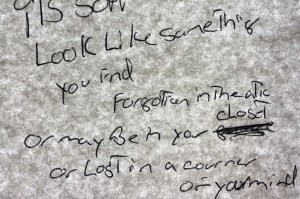 Look Like something
you find
Forgotten in the attic
closet
or maybe in your
or Lost in a courner
of your mind